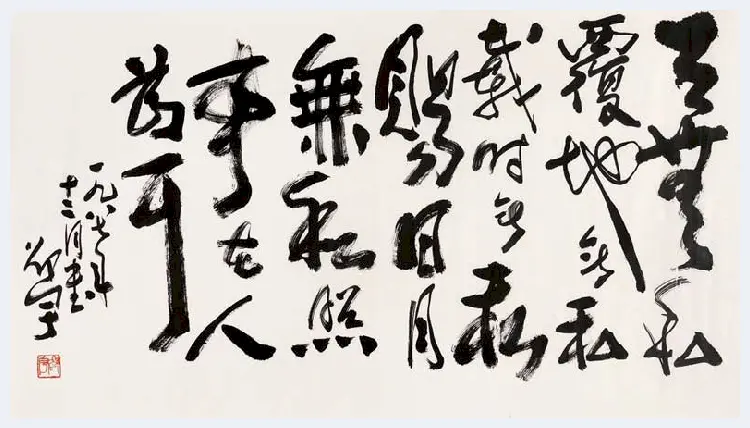 天無私
覆地無私
載时無
賜日月
無私照
事在人
為耳
一九八七年
十二月書